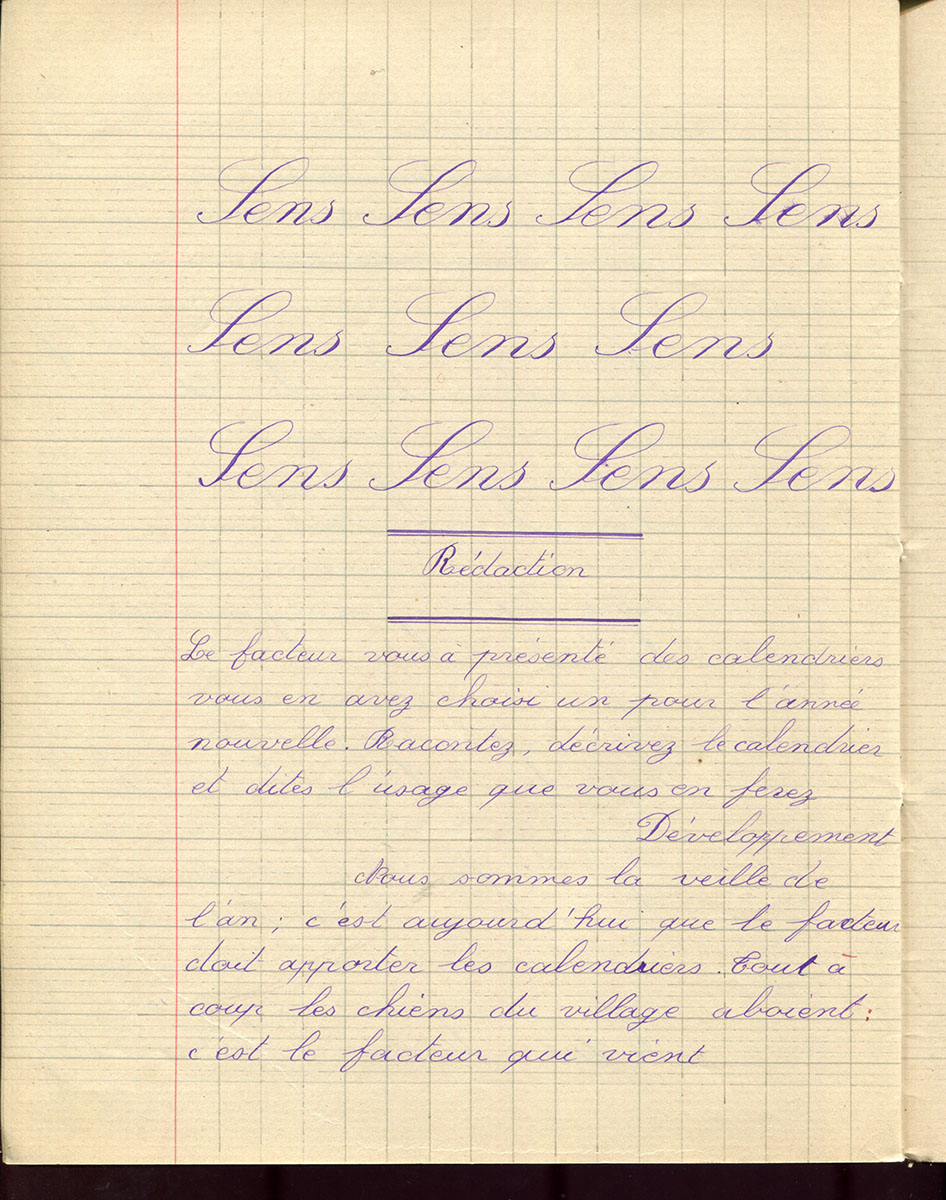 Sens Sens Sens Sens
Sens Sens Sens
Sens Sens Sens Sens
Rédaction
Le facteur vous à présenté des calendriers
vous en avez choisi un pour l'année
nouvelle. Racontez, décrivez le calendrier
et dites l'usage que vous en ferez
Développement
Nous sommes la veille de
l'an ; c'est aujourd'hui que le facteur
doit apporter les calendriers. Tout à
coup les chiens du village aboient :
c'est le facteur qui vient